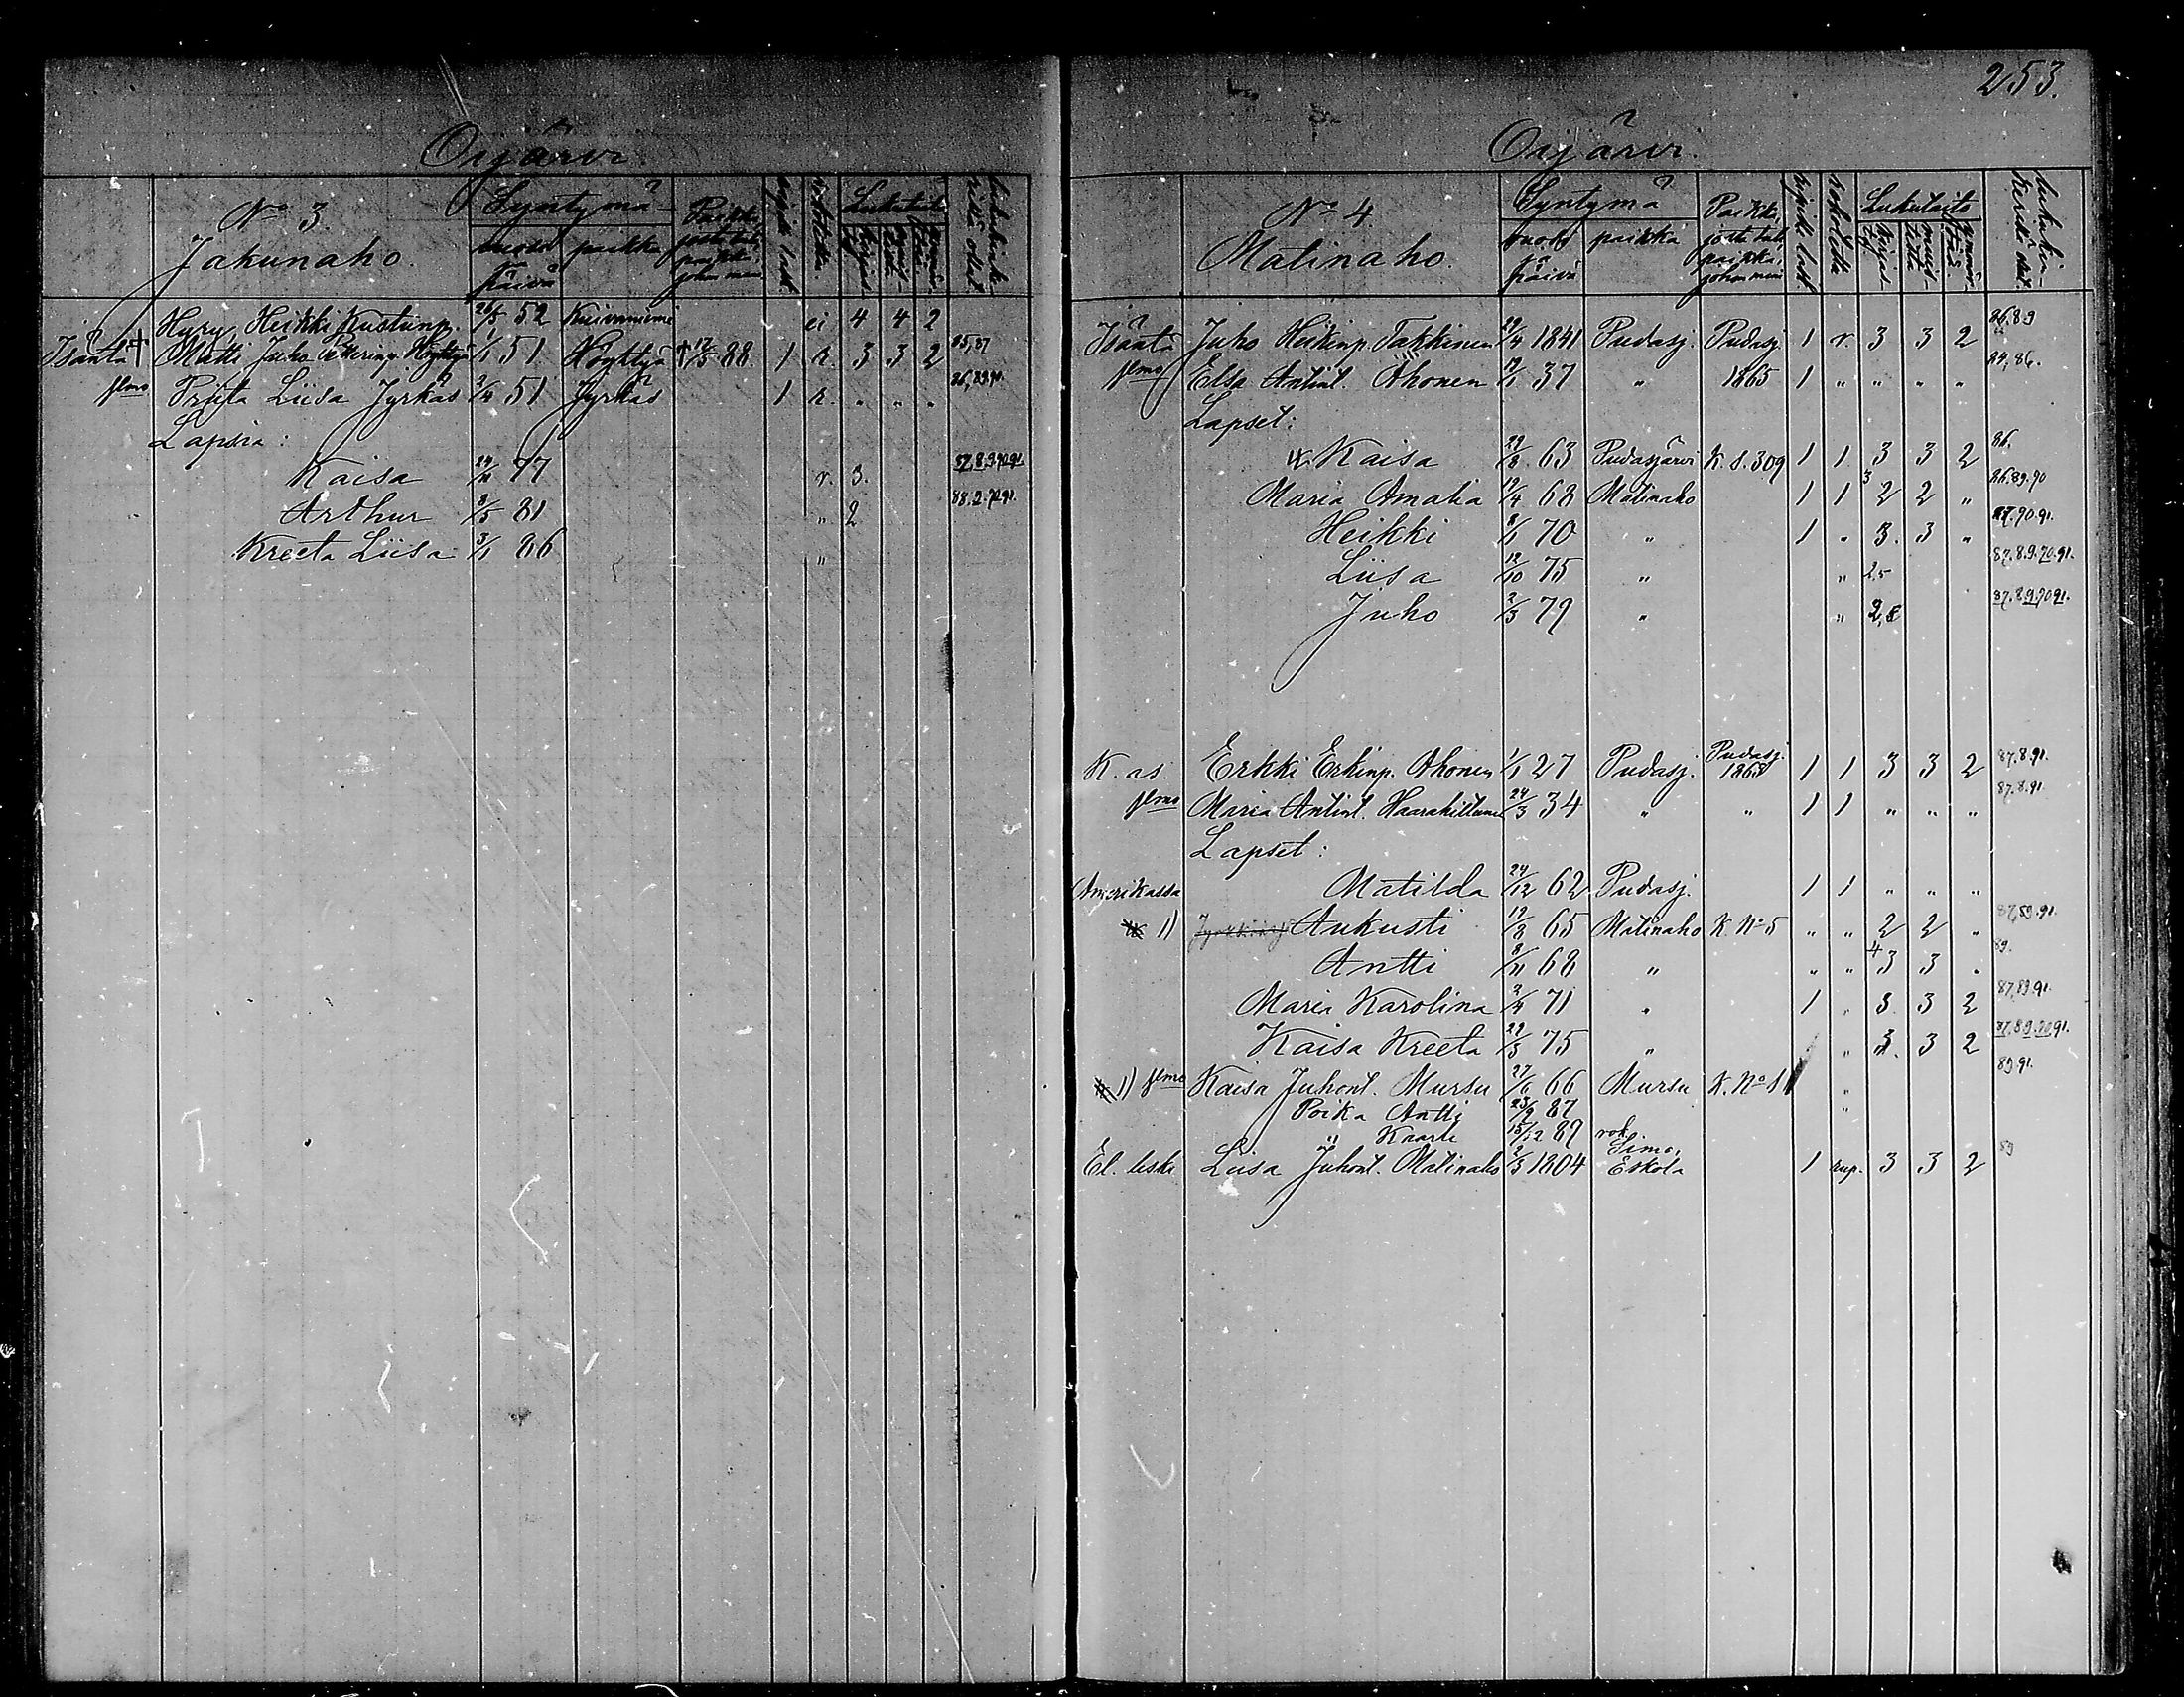 Oijärvi
No 3.
Jakunaho.
Syntymä
vuosi ja päivä
paikka
Paikka, josta tuli, paikka, johon meni
Hyry, Heikki Kustinp. 26/8 52 Kuivaniemi ei 4 4 2
Isäntä † Matti Juho Petterinp. Höyhtyä 1/1 51 Höyhtyä † 17/5 88. 1 r. 3 3 2 85,87
Priita Liisa Jyrkäs 2/4 51 Jyrkäs 1 r. „ „ „
Lapsia:
Kaisa 24/11 77 v. 3.
Arthur 3/5 81 „ 2
Kreeta Liisa 3/1 86 „
253.
Oijärvi.
No 4.
Matinaho.
Syntymä
vuosi päivä
paikka
Paikka, josta tuli, paikka, johon meni
Lukutaito
Isäntä Juho Heikinp. Takkinen 29/4 1841 Pudasj. Pudasj. 1 v. 3 3 2 86.89
Elsa Antint. Ahonen 17/1 37 „ 1865 1 „ „ „ „ 84,86.
Lapset:
Kaisa 29/8 63 Pudasjärvi K. s. 309 1 1 3 3 2 86.
Maria Amalia 12/4 68 Matinaho 1 1 3 2 2 „ 86.89.90
Heikki 8/1 70 „ 1 „ 3. 3 „ 87.90.91.
Liisa 12/10 75 „ „ 2,5 87.8.9.90.91.
Juho 2/3 79 „ „ 87.8.9.90.91.
K. as. Erkki Erkinp. Ahonen 1/1 27 Pudasj. Pudasj. 1868 1 1 3 3 2 87.8.91.
Maria Antint. 24/3 34 „ „ 1 1 „ „ „ 87.8.91
Lapset:
Amerikassa Matilda 24/12 62 Pudasj. 1 1 „ „ „
1) Aukusti 19/8 65 Matinaho K No 5 „ „ 2 2 „ 87,89.91.
Antti 8/11 68 „ „ „ 4 3 3 „ 89.
Maria Karolina 2/4 71 „ 1 „ 3. 3 2 87,89.91.
Kaisa Kreeta 29/3 75 „ „ 3. 3 2 87.8.9.90.91.
1) Kaisa Juhont. Mursu 27/6 66 Mursu K. No 8 „ 89.91.
Poika Antti 23/9 87 „
„ Kaarle 15/12 89 rok.
El. leski Liisa Juhont. Matinaho 2/3 1804 Simo, Eskola 1 rup. 3 3 2 89